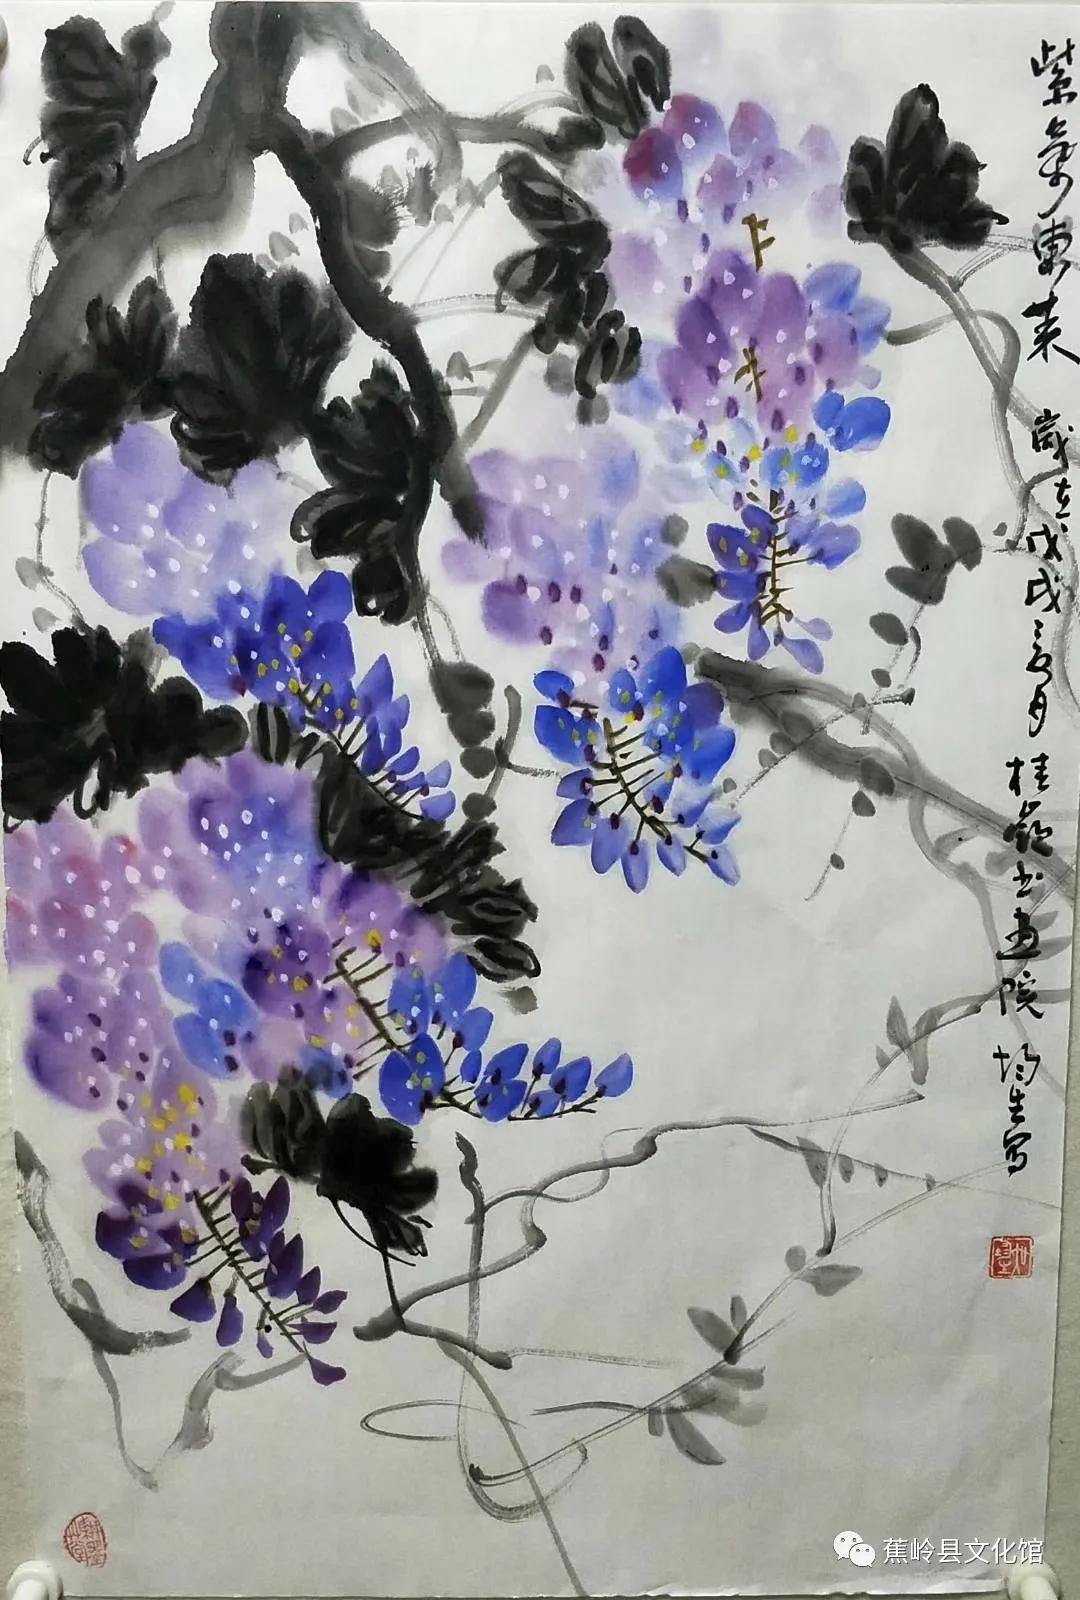 紫气东来 岁在戊戌
月 桂岭书画院 均生写
蕉岭县文化馆